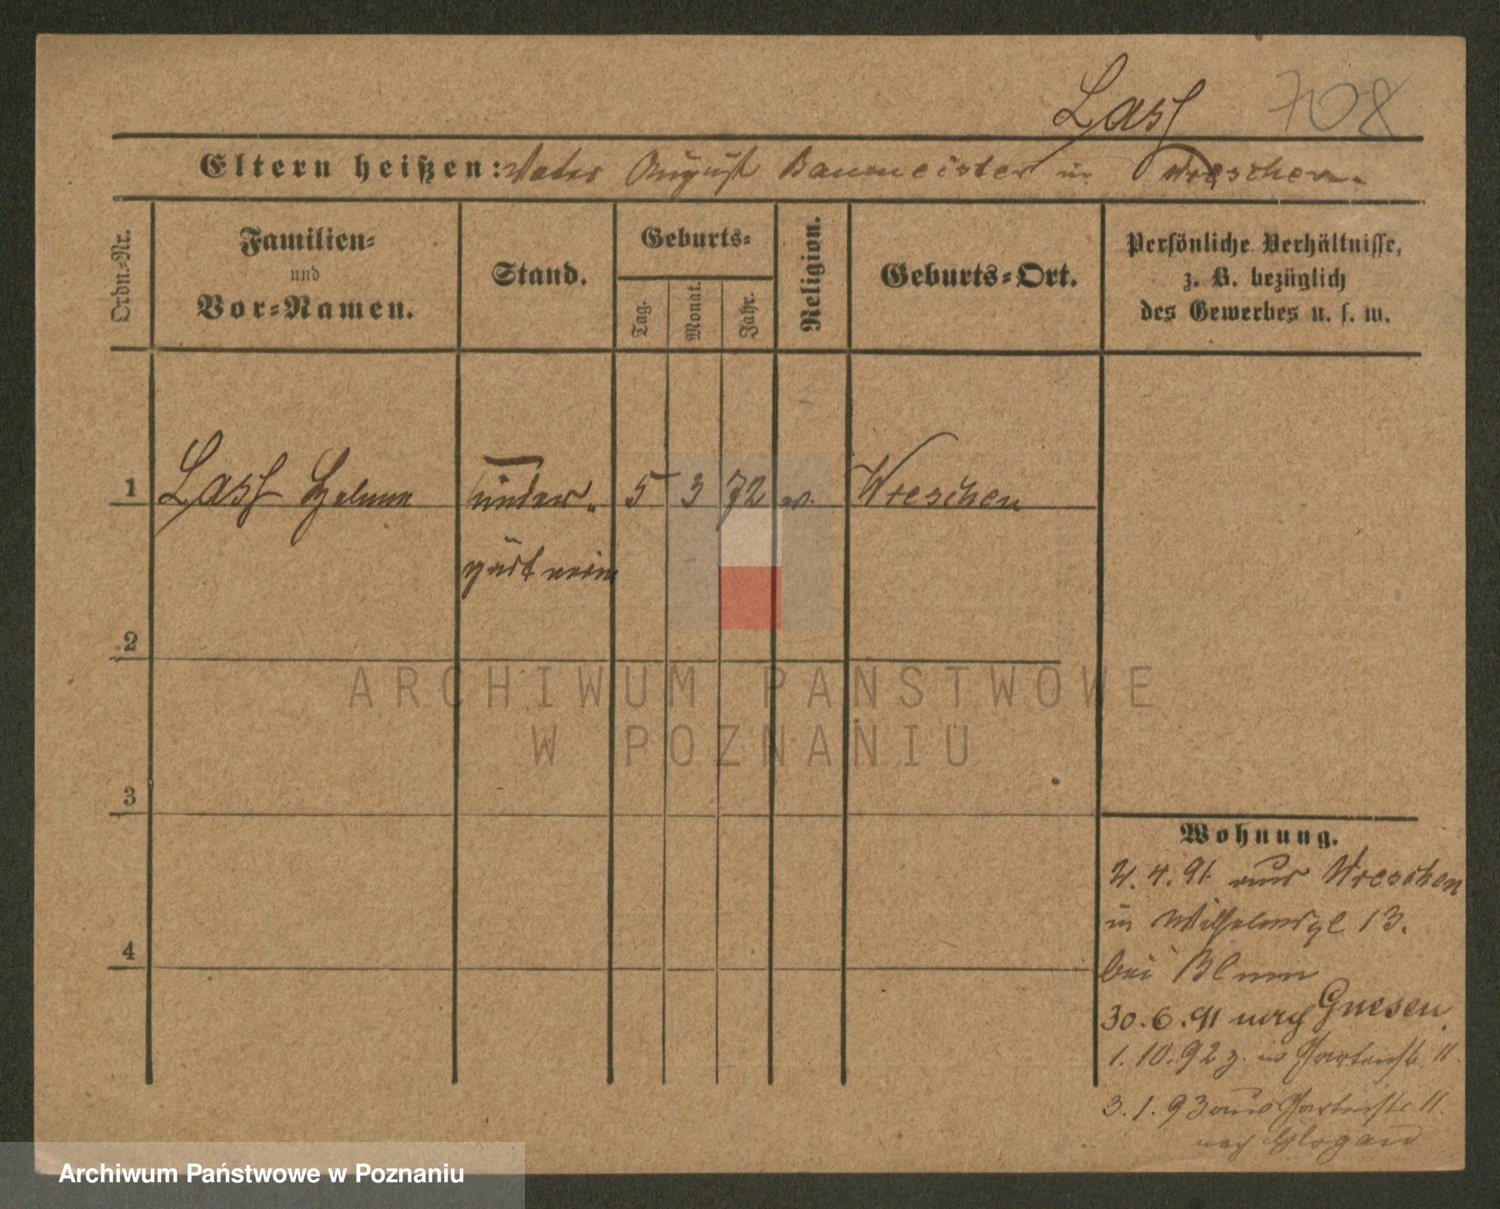 Lass 708
Eltern heißen: Vater August Baumeister in Wreschen.
Ordn.-Nr.
Familien-
und
Vor-Namen.
Stand.
Geburts-
Tag.
Monat.
Jahr.
Religion.
Geburts-Ort.
Persönliche Verhältnisse,
z. B. bezüglich
des Gewerbes u. s. w.
1 Lass Helene Kinder- 5 3 72 ev. Wreschen
gärtnerin
2
3
4
ARCHIWUM PAŃSTWOWE
W POZNANIU
Wohnung.
4. 91 aus Wreschen
in Wilhelmspl 13.
bei Blum
30. 6. 91 nach Gnesen.
1. 10. 92 z. in Gartenstr. 11.
3. 1. 93 aus Gartenstr 11.
nach Glogau
Archiwum Państwowe w Poznaniu